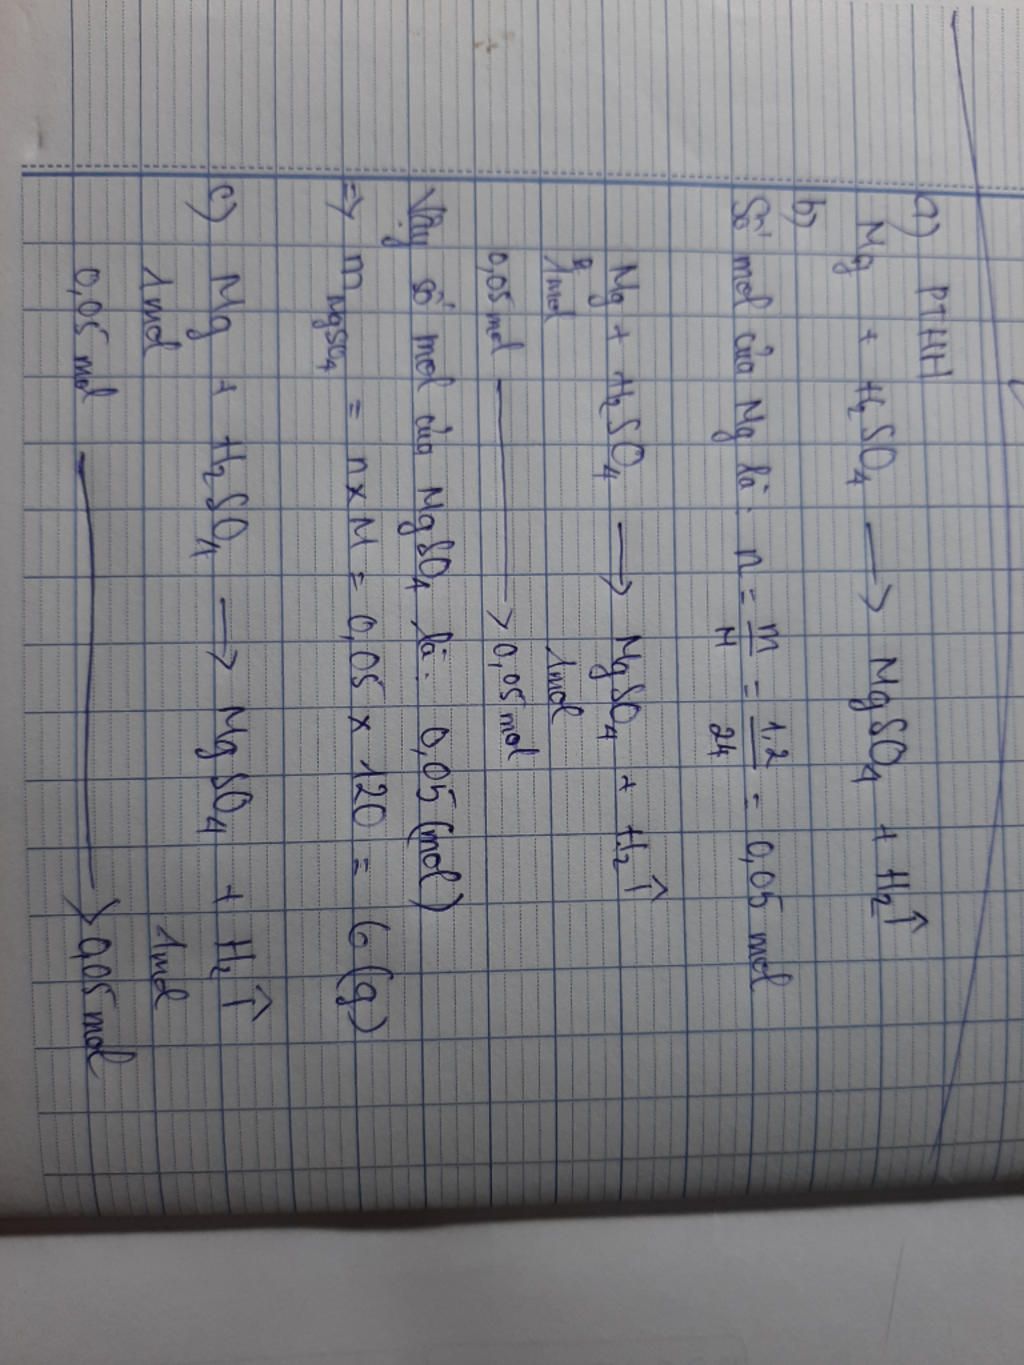 a) PTHH
Mg + H₂SO₄ ⟶ MgSO₄ + H₂↑
b)
Số mol của Mg là: n = m/M = 1,2/24 = 0,05 mol
Mg + H₂SO₄ ⟶ MgSO₄ + H₂↑
1mol 1mol
0,05 mol ⟶ 0,05 mol
Vậy số mol của MgSO₄ là: 0,05 (mol)
=> m MgSO₄ = n x M = 0,05 x 120 = 6 (g)
c) Mg + H₂SO₄ ⟶ MgSO₄ + H₂↑
1mol 1mol
0,05 mol ⟶ 0,05 mol